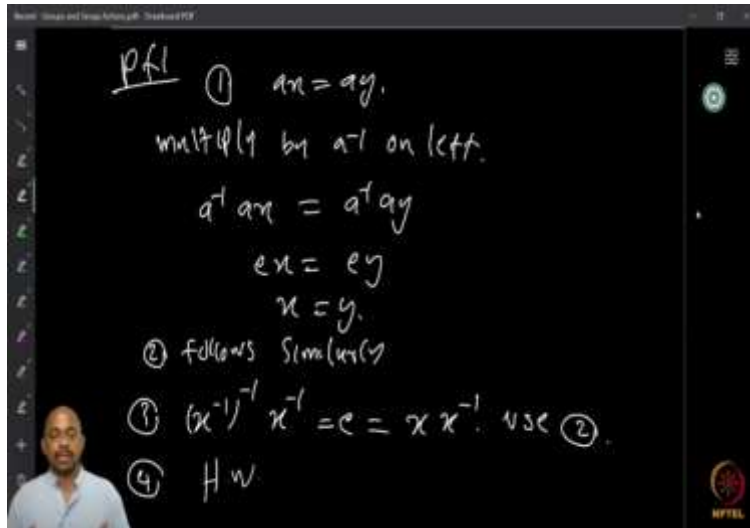 Pf 1 ① ax = ay.
multiply by a⁻¹ on left.
a⁻¹ ax = a⁻¹ ay
ex = ey
x = y.
② follows similarly
③ (x⁻¹)⁻¹ x⁻¹ = e = x x⁻¹. use ②.
④ HW
NPTEL